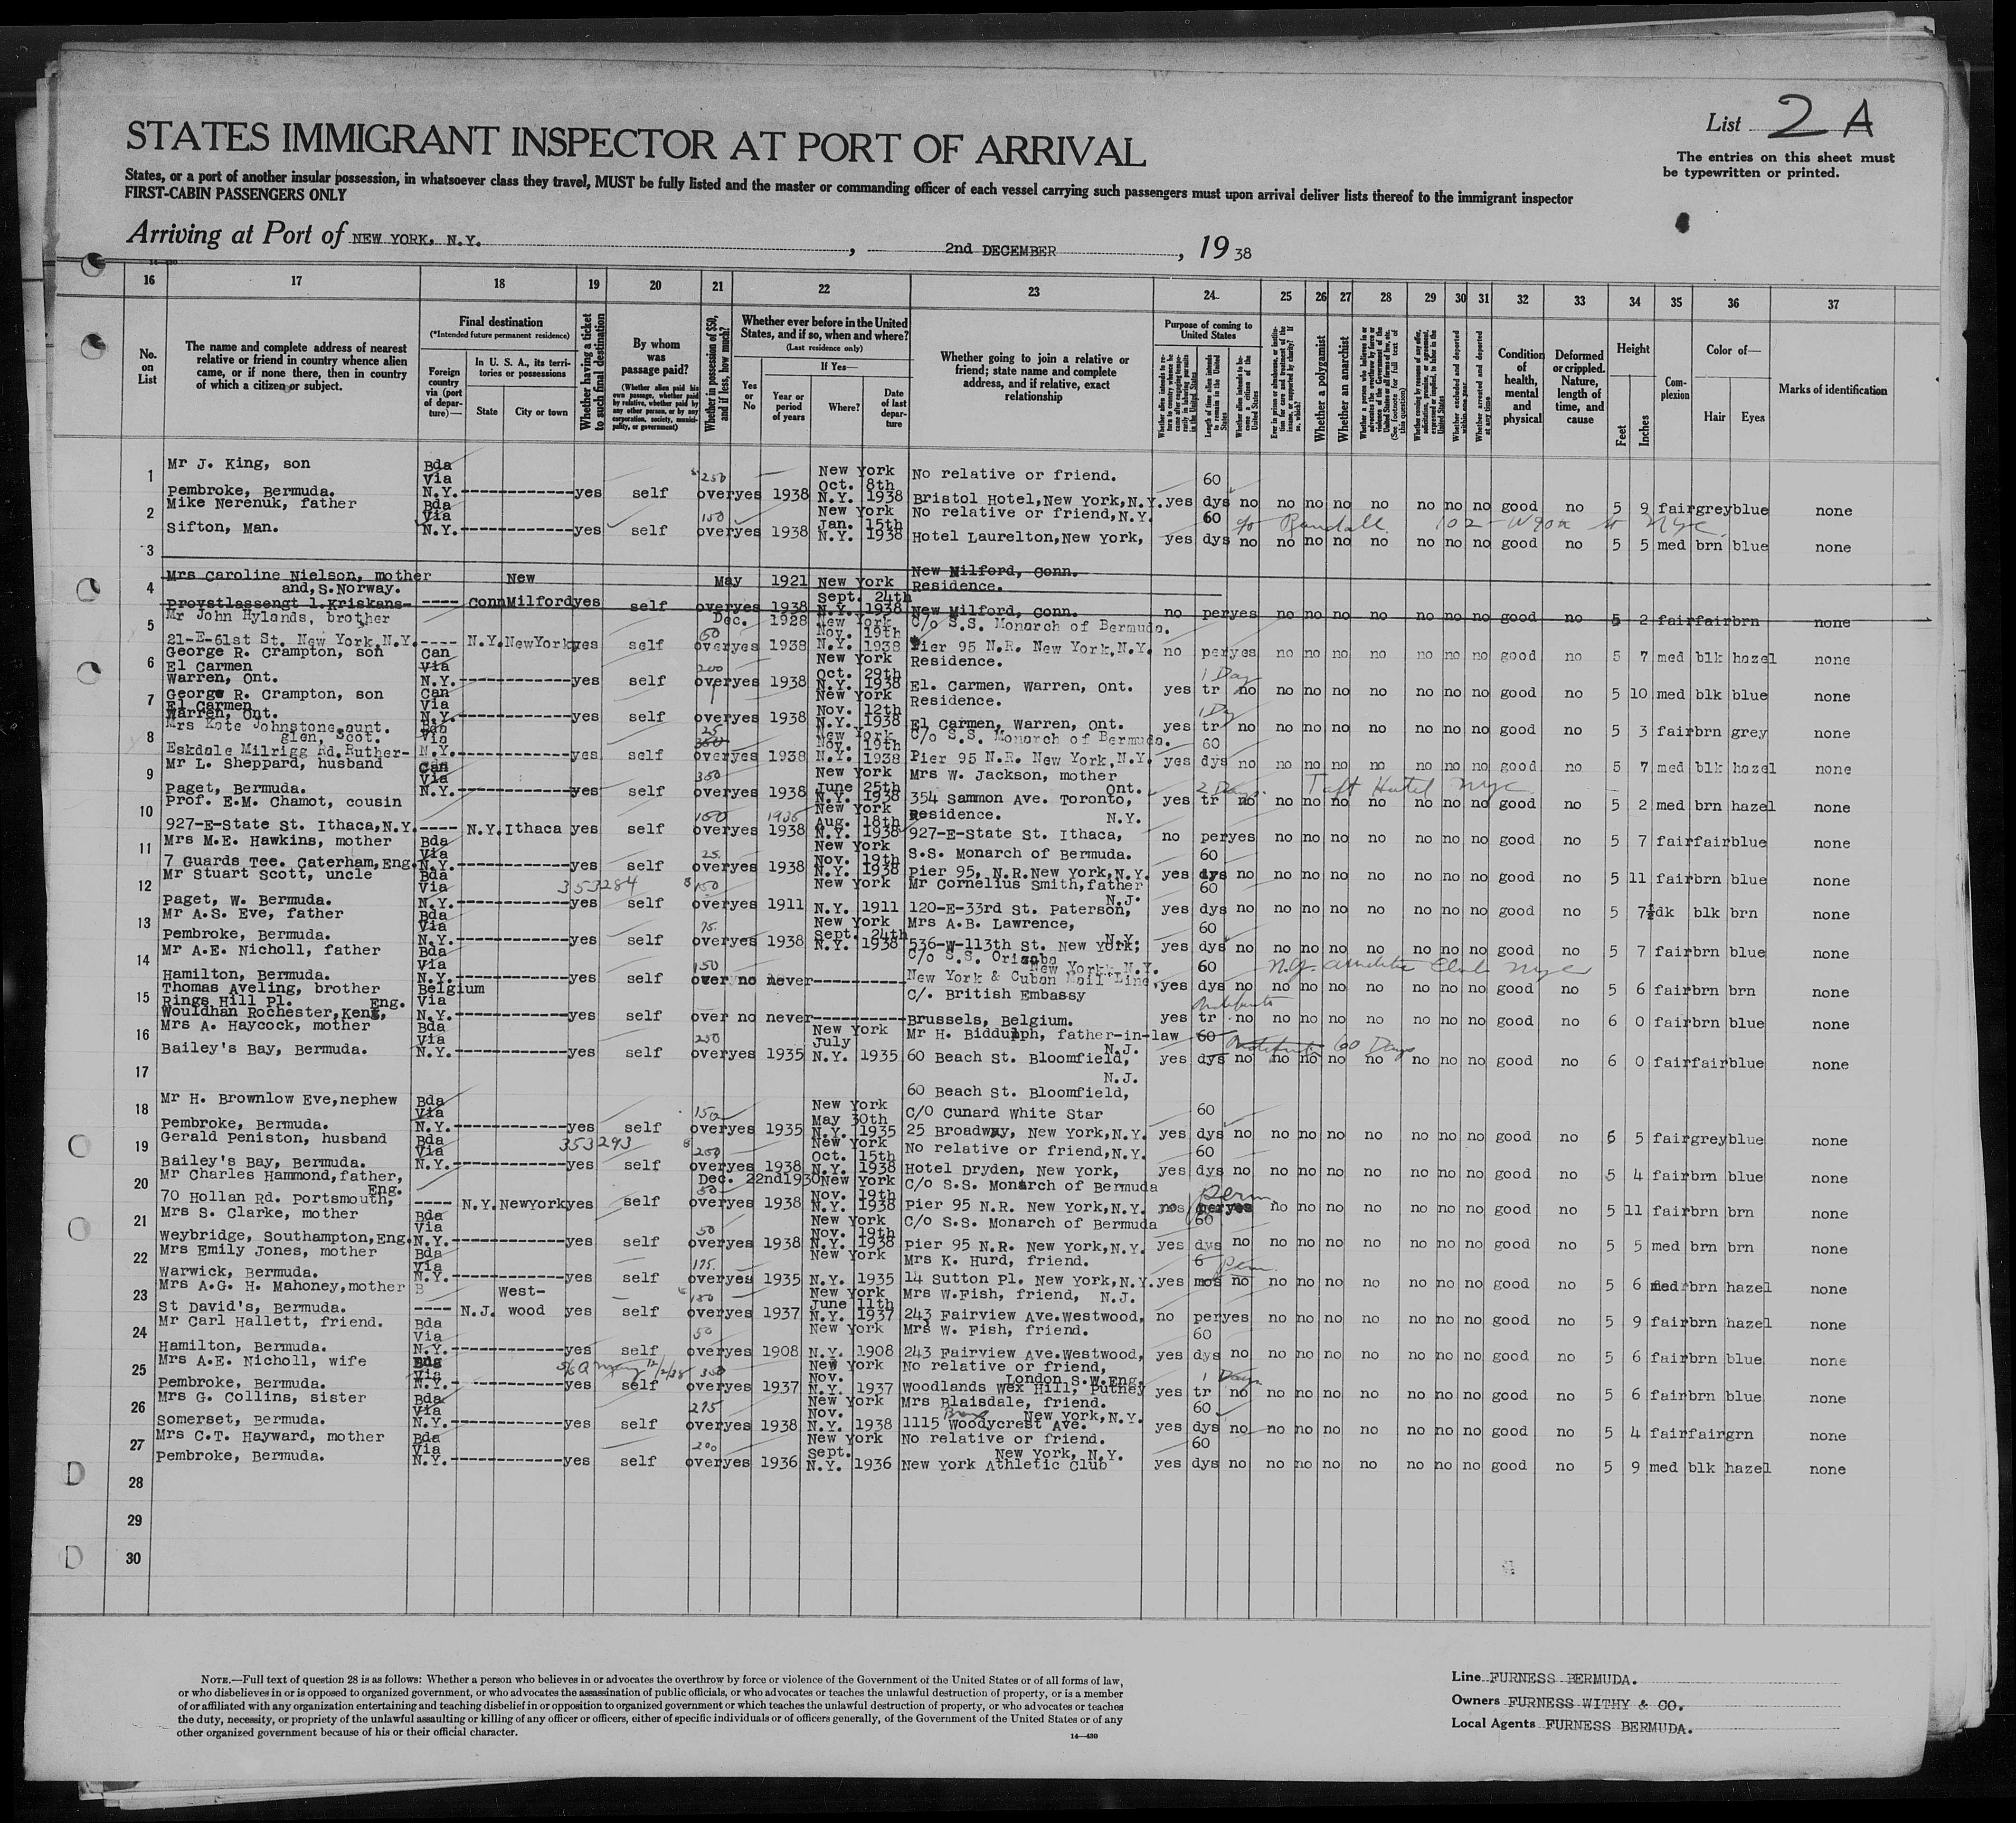 List 2 A
STATES IMMIGRANT INSPECTOR AT PORT OF ARRIVAL
The entries on this sheet must
be typewritten or printed.
States, or a port of another insular possession, in whatsoever class they travel, MUST be fully listed and the master or commanding officer of each vessel carrying such passengers must upon arrival deliver lists thereof to the immigrant inspector
FIRST-CABIN PASSENGERS ONLY
Arriving at Port of NEW YORK, N.Y. , 2nd DECEMBER , 19 38
16 17 18 19 20 21 22 23 24 25 26 27 28 29 30 31 32 33 34 35 36 37
No. on List
The name and complete address of nearest relative or friend in country whence alien came, or if none there, then in country of which a citizen or subject.
Foreign country via (port of departure)—
Final destination
(*Intended future permanent residence)
In U. S. A., its territories or possessions
State City or town
Whether having a ticket to such final destination
By whom was passage paid?
(Whether alien paid his own passage, whether paid by relative, whether paid by any other person, or by any corporation, society, municipality, or government)
Whether in possession of $50, and if less, how much?
Whether ever before in the United States, and if so, when and where?
(Last residence only)
Yes or No
If Yes—
Year or period of years Where? Date of last departure
Whether going to join a relative or friend; state name and complete address, and if relative, exact relationship
Purpose of coming to United States
Length of time alien intends to remain in the United States
Whether alien intends to become a citizen of the United States
Whether a polygamist
Whether an anarchist
Condition of health, mental and physical
Deformed or crippled. Nature, length of time, and cause
Height
Feet Inches
Complexion
Color of—
Hair Eyes
Marks of identification
1 Mr J. King, son Pembroke, Bermuda. Bda Via N.Y. yes self 250 over yes 1938 New York N.Y. Oct. 8th 1938 No relative or friend. Bristol Hotel, New York, N.Y. yes 60 dys no no no no no no no no good no 5 9 fair grey blue none
2 Mike Nerenuk, father Sifton, Man. Bda Via N.Y. yes self 150 over yes 1938 New York N.Y. Jan. 15th 1938 No relative or friend, N.Y. Hotel Laurelton, New York, yes 60 dys no no no no no no no no good no 5 5 med brn blue none
c/o Randall 102-W90th St NYC
3
4 Mrs Caroline Nielson, mother and, S. Norway. Provstlassengt 1. Kriskans- ---- Conn New Milford yes self over yes May 1921 1938 New York N.Y. Sept. 24th 1938 New Milford, Conn. Residence. New Milford, Conn. no per yes no no no no no no no good no 5 2 fair fair brn none
5 Mr John Hylands, brother 21-E-61st St. New York, N.Y. ---- N.Y. New York yes self 50 over yes Dec. 1928 1938 New York N.Y. Nov. 19th 1938 C/o S.S. Monarch of Bermuda. Pier 95 N.R. New York, N.Y. no per yes no no no no no no no good no 5 7 med blk hazel none
6 George R. Crampton, son El Carmen Warren, Ont. Can Via N.Y. yes self 200 over yes 1938 New York N.Y. Oct. 29th 1938 Residence. El. Carmen, Warren, Ont. yes 1 Day tr no no no no no no no no good no 5 10 med blk blue none
7 George R. Crampton, son El Carmen Warren, Ont. Can Via N.Y. yes self over yes 1938 New York N.Y. Nov. 12th 1938 Residence. El Carmen, Warren, Ont. yes 1 Day tr no no no no no no no no good no 5 3 fair brn grey none
8 Mrs Kate Johnstone, aunt. glen, Scot. Eskdale Milrigg Rd. Ruther- Bda Via N.Y. yes self 25 over yes 1938 New York N.Y. Nov. 19th 1938 C/o S.S. Monarch of Bermuda. Pier 95 N.R. New York, N.Y. yes 60 dys no no no no no no no no good no 5 7 med blk hazel none
9 Mr L. Sheppard, husband Paget, Bermuda. Can Via N.Y. yes self 350 over yes 1938 New York N.Y. June 25th 1938 Mrs W. Jackson, mother Ont. 354 Sammon Ave. Toronto, yes 2 Days. tr no no no no no no no no good no 5 2 med brn hazel none
Taft Hotel NYC
10 Prof. E.M. Chamot, cousin 927-E-State St. Ithaca, N.Y. ---- N.Y. Ithaca yes self 150 over yes 1936 1938 New York N.Y. Aug. 18th 1938 Residence. N.Y. 927-E-State St. Ithaca, no per yes no no no no no no no good no 5 7 fair fair blue none
11 Mrs M.E. Hawkins, mother 7 Guards Tee. Caterham, Eng. Bda Via N.Y. yes self 25. over yes 1938 New York N.Y. Nov. 19th 1938 S.S. Monarch of Bermuda. Pier 95, N.R. New York, N.Y. yes 60 dys no no no no no no no no good no 5 11 fair brn blue none
12 Mr Stuart Scott, uncle Paget, W. Bermuda. Bda Via N.Y. 353284 yes self 150 over yes 1911 New York N.Y. 1911 Mr Cornelius Smith, father N.J. 120-E-33rd St. Paterson, yes 60 dys no no no no no no no no good no 5 7½ dk blk brn none
13 Mr A.S. Eve, father Pembroke, Bermuda. Bda Via N.Y. yes self 75. over yes 1938 New York N.Y. Sept. 24th 1938 Mrs A.B. Lawrence, N.Y. 536-W-113th St. New York, yes 60 dys no no no no no no no no good no 5 7 fair brn blue none
14 Mr A.E. Nicholl, father Hamilton, Bermuda. Bda Via N.Y. yes self 150 over no never C/o S.S. Orizaba New York, N.Y. New York & Cuban Mail Line, yes 60 dys no no no no no no no no good no 5 6 fair brn brn none
N.Y. Athletic Club NYC
15 Thomas Aveling, brother Rings Hill Pl. Eng. Wouldhan Rochester, Kent, Belgium Via N.Y. yes self over no never C/. British Embassy Brussels, Belgium. yes Indefinite tr no no no no no no no no good no 6 0 fair brn blue none
16 Mrs A. Haycock, mother Bailey's Bay, Bermuda. Bda Via N.Y. yes self 250 over yes 1935 New York July N.Y. 1935 Mr H. Biddulph, father-in-law N.J. 60 Beach St. Bloomfield, yes 60 dys Indefinite 60 Days no no no no no no no no good no 6 0 fair fair blue none
17 N.J. 60 Beach St. Bloomfield,
18 Mr H. Brownlow Eve, nephew Pembroke, Bermuda. Bda Via N.Y. yes self 150 over yes 1935 New York N.Y. May 30th 1935 C/O Cunard White Star 25 Broadway, New York, N.Y. yes 60 dys no no no no no no no no good no 6 5 fair grey blue none
19 Gerald Peniston, husband Bailey's Bay, Bermuda. Bda Via N.Y. 353293 yes self 250 over yes 1938 New York N.Y. Oct. 15th 1938 No relative or friend, N.Y. Hotel Dryden, New York, yes 60 dys no no no no no no no no good no 5 4 fair brn blue none
20 Mr Charles Hammond, father, Eng. 70 Hollan Rd. Portsmouth, ---- N.Y. New York yes self 50 over yes Dec. 22nd 1930 1938 New York N.Y. Nov. 19th 1938 C/o S.S. Monarch of Bermuda Pier 95 N.R. New York, N.Y. no perm per yes no no no no no no no good no 5 11 fair brn brn none
21 Mrs S. Clarke, mother Weybridge, Southampton, Eng. Bda Via N.Y. yes self 50 over yes 1938 New York N.Y. Nov. 19th 1938 C/o S.S. Monarch of Bermuda Pier 95 N.R. New York, N.Y. yes 60 dys no no no no no no no no good no 5 5 med brn brn none
22 Mrs Emily Jones, mother Warwick, Bermuda. Bda Via N.Y. yes self 175. over yes 1935 New York N.Y. 1935 Mrs K. Hurd, friend. 14 Sutton Pl. New York, N.Y. yes 6 mos no no no no no no no no good no 5 6 med brn hazel none
23 Mrs A.G. H. Mahoney, mother St David's, Bermuda. B ---- N.J. West- wood yes self 150 over yes 1937 New York N.Y. June 11th 1937 Mrs W. Fish, friend, N.J. 243 Fairview Ave. Westwood, no Perm per yes no no no no no no no good no 5 9 fair brn hazel none
24 Mr Carl Hallett, friend. Hamilton, Bermuda. Bda Via N.Y. yes self 50 over yes 1908 New York N.Y. 1908 Mrs W. Fish, friend. 243 Fairview Ave. Westwood, yes 60 dys no no no no no no no no good no 5 6 fair brn blue none
25 Mrs A.E. Nicholl, wife Pembroke, Bermuda. Eng Via N.Y. 12/2/38 yes self 350 over yes 1937 New York Nov. N.Y. 1937 No relative or friend, London S.W. Eng. Woodlands Wex Hill, Putney yes 1 Days tr no no no no no no no no good no 5 6 fair brn blue none
26 Mrs G. Collins, sister Somerset, Bermuda. Bda Via N.Y. yes self 275 over yes 1938 New York Nov. N.Y. 1938 Mrs Blaisdale, friend. Bronx New York, N.Y. 1115 Woodycrest Ave. yes 60 dys no no no no no no no no good no 5 4 fair fair grn none
27 Mrs C.T. Hayward, mother Pembroke, Bermuda. Bda Via N.Y. yes self 200 over yes 1936 New York Sept. N.Y. 1936 No relative or friend. New York, N.Y. New York Athletic Club yes 60 dys no no no no no no no no good no 5 9 med blk hazel none
28
29
30
NOTE.—Full text of question 28 is as follows: Whether a person who believes in or advocates the overthrow by force or violence of the Government of the United States or of all forms of law,
or who disbelieves in or is opposed to organized government, or who advocates the assassination of public officials, or who advocates or teaches the unlawful destruction of property, or is a member
of or affiliated with any organization entertaining and teaching disbelief in or opposition to organized government or which teaches the unlawful destruction of property, or who advocates or teaches
the duty, necessity, or propriety of the unlawful assaulting or killing of any officer or officers, either of specific individuals or of officers generally, of the Government of the United States or of any
other organized government because of his or their official character.
14—430
Line FURNESS BERMUDA.
Owners FURNESS WITHY & CO.
Local Agents FURNESS BERMUDA.